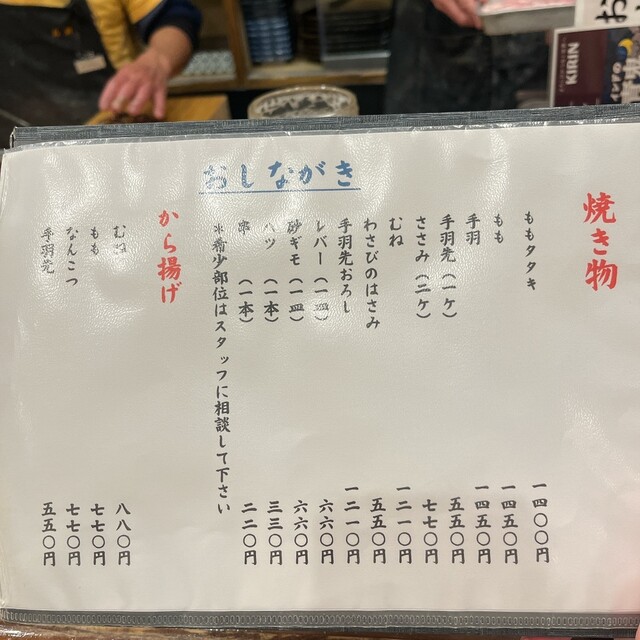 おしながき
焼き物
ももタタキ 一四〇〇円
もも 一四五〇円
手羽 一四五〇円
手羽先（一ケ） 五五〇円
ささみ（二ケ） 七七〇円
むね 一二一〇円
わさびのはさみ 五五〇円
手羽先おろし 一二一〇円
レバー（一皿） 六六〇円
砂ギモ（一皿） 六六〇円
ハツ（一本） 三三〇円
串（一本） 二二〇円
＊希少部位はスタッフに相談して下さい
から揚げ
むね 八八〇円
もも 七七〇円
なんこつ 七七〇円
手羽先 五五〇円
KIRIN
お